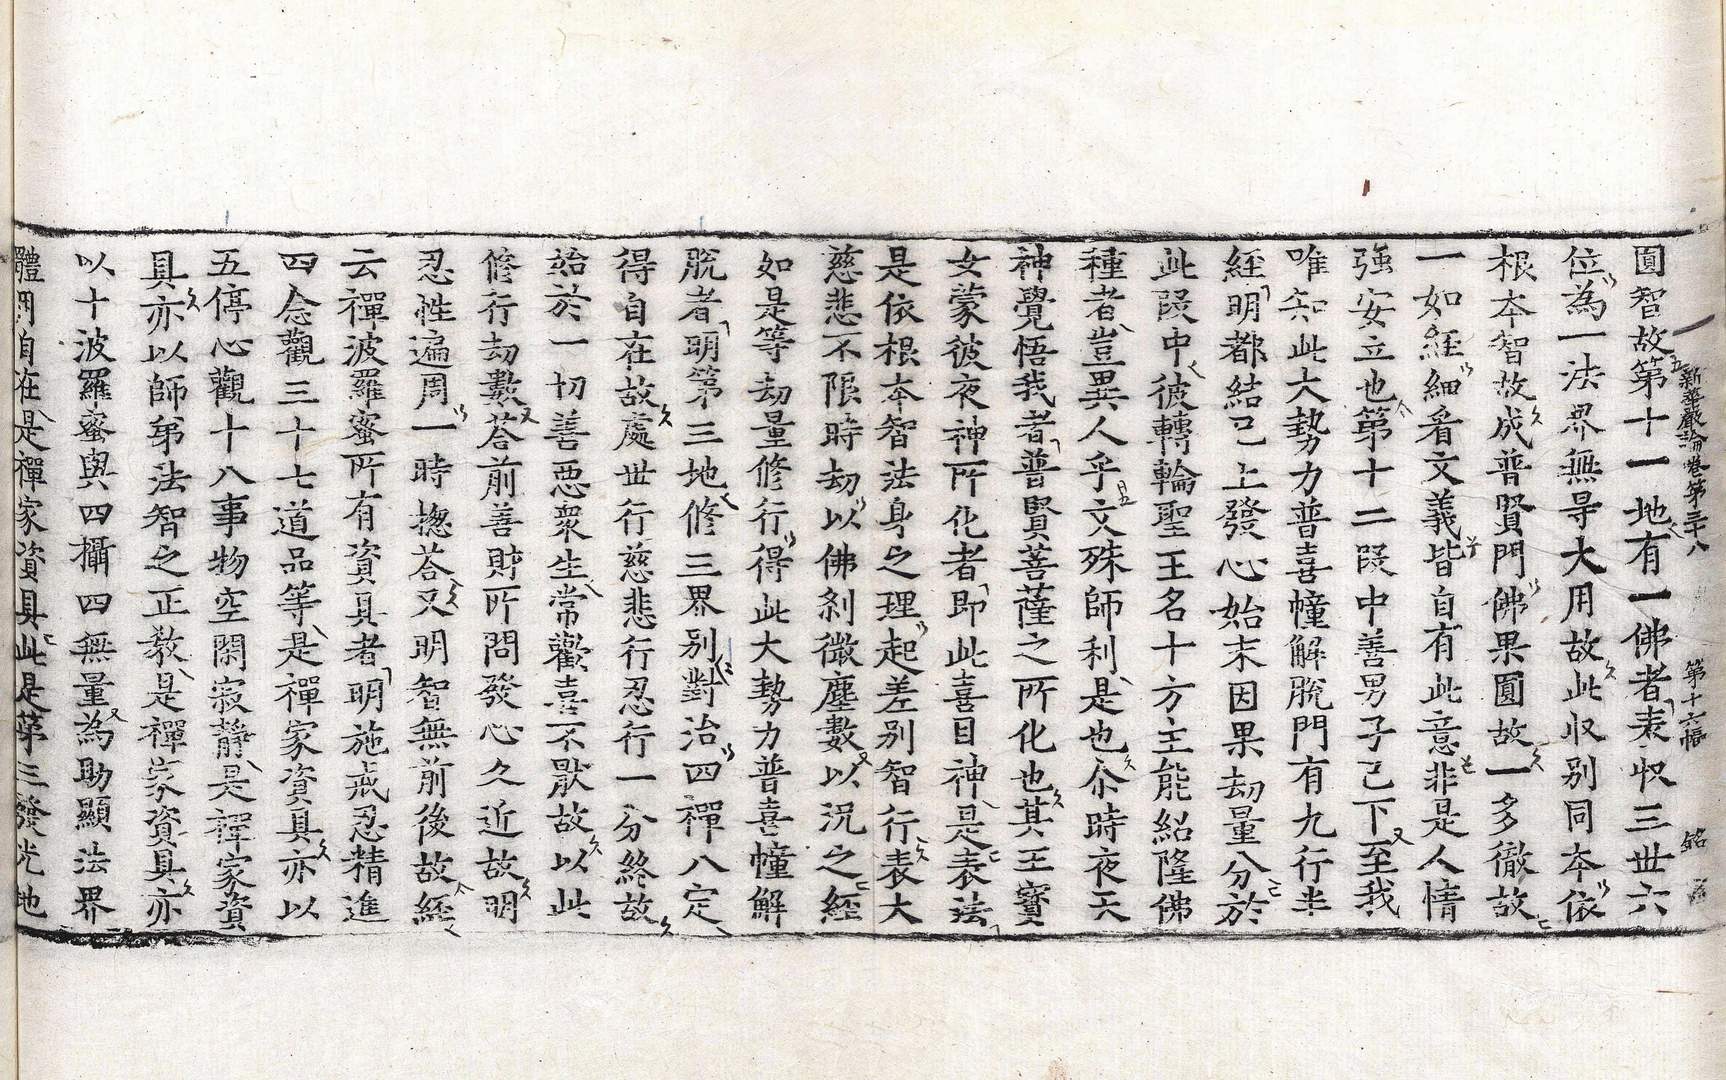 圓智故第十一地有一佛者表収三世六
新華嚴論卷第三十八 第十六幅 銘
位為一法界無㝵大用故此収别同本依
根本智故成普賢門佛果圓故一多徹故
一如經細看文義皆自有此意非是人情
強安立也第十二叚中善男子已下至我
唯知此大勢力普喜幢解脫門有九行半
經明都結已上發心始末因果劫量分於
此叚中彼轉輪聖王名十方主能紹隆佛
種者豈異人乎文殊師利是也尒時夜天
神覺悟我者普賢菩薩之所化也其王寶
女蒙彼夜神所化者即此喜目神是表法
是依根本智法身之理起差别智行表大
慈悲不限時劫以佛刹微塵數以況之經
如是等劫量修行得此大勢力普喜幢解
脫者明第三地修三界别對治四禪八定
得自在故處世行慈悲行忍行一分終故
始於一切善惡衆生常歡喜不猒故以此
修行劫數荅前善財所問發心久近故明
忍性遍周一時揔荅又明智無前後故經
云禪波羅蜜所有資具者明施戒忍精進
四念觀三十七道品等是禪家資具亦以
五停心觀十八事物空閑寂靜是禪家資
具亦以師弟法智之正教是禪家資具亦
以十波羅蜜與四攝四無量為助顯法界
體用自在是禪家資具此是第三發光地